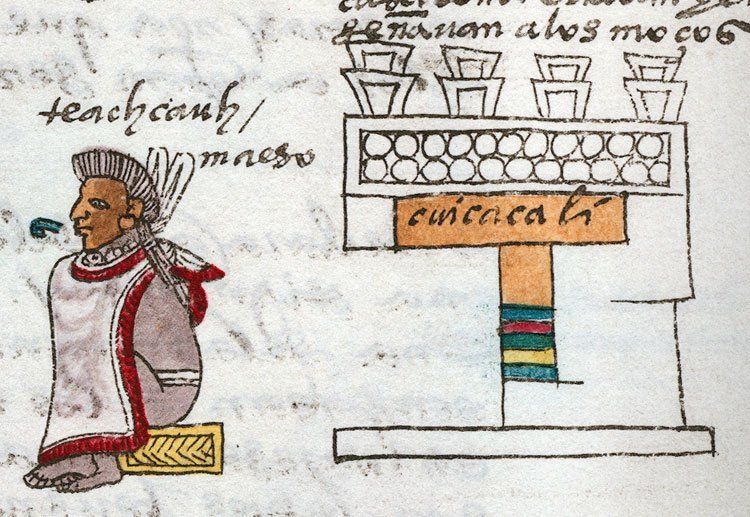 señavan a los moços
teachcauh/
maeso
cuicacali